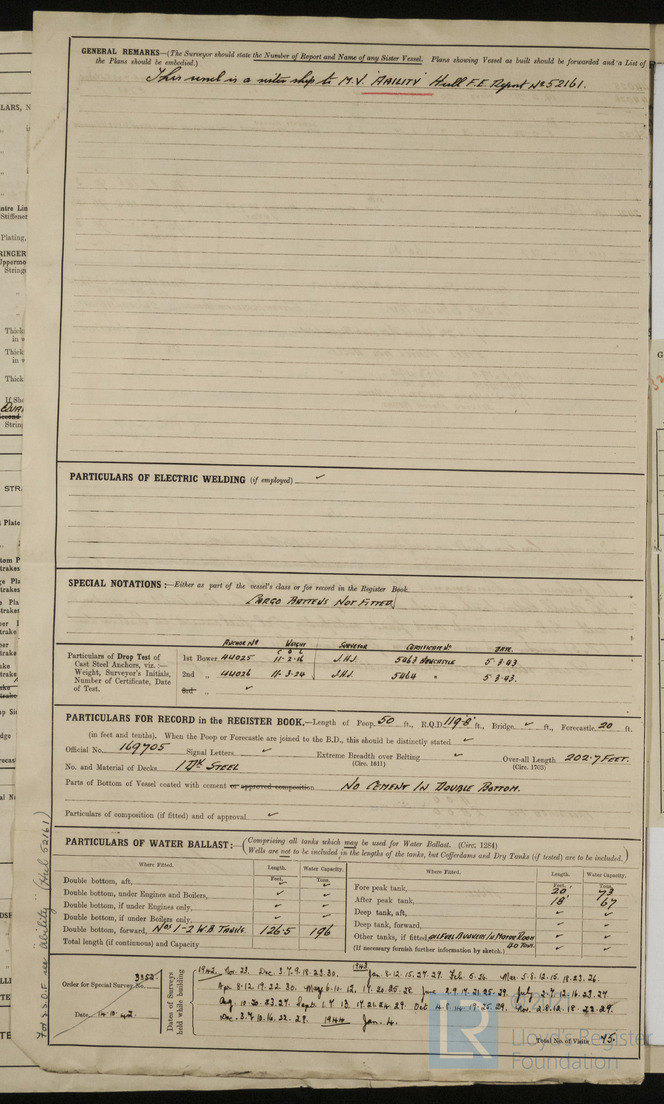 GENERAL REMARKS—(The Surveyor should state the Number of Report and Name of any Sister Vessel. Plans showing Vessel as built should be forwarded and a List of
the Plans should be embodied.)
This vessel is a sister ship to M.V. "ABILITY" Hull F.E. Report No 52161.
PARTICULARS OF ELECTRIC WELDING (if employed) ✓
SPECIAL NOTATIONS:—Either as part of the vessel's class or for record in the Register Book.
CARGO BATTENS NOT FITTED
ANCHOR No WEIGHT SURVEYOR CERTIFICATE No DATE.
C Q L
Particulars of Drop Test of
Cast Steel Anchors, viz.:—
Weight, Surveyor's Initials,
Number of Certificate, Date
of Test.
1st Bower 44025 11-2-16 J.H.J. 5463 NEWCASTLE 5-3-43
2nd „ 44026 11-3-24 J.H.J. 5464 " 5-3-43.
3rd „ ✓
PARTICULARS FOR RECORD in the REGISTER BOOK.—Length of Poop 50 ft., R.Q.D. 119.8' ft., Bridge ✓ ft., Forecastle 20 ft.
(in feet and tenths). When the Poop or Forecastle are joined to the B.D., this should be distinctly stated ✓
Official No. 169705 Signal Letters ✓ Extreme Breadth over Belting ✓ Over-all Length 202.7 FEET.
(Circ. 1611) (Circ. 1703)
No. and Material of Decks 1 DK STEEL
Parts of Bottom of Vessel coated with cement or approved composition NO CEMENT IN DOUBLE BOTTOM.
Particulars of composition (if fitted) and of approval ✓
PARTICULARS OF WATER BALLAST:—(Comprising all tanks which may be used for Water Ballast. (Circ. 1284)
Wells are not to be included in the lengths of the tanks, but Cofferdams and Dry Tanks (if tested) are to be included.)
Where Fitted. Length. Water Capacity. Where Fitted. Length. Water Capacity.
Feet. Tons. Feet. Tons.
Double bottom, aft, ✓ ✓
Double bottom, under Engines and Boilers, ✓ ✓
Double bottom, if under Engines only, ✓ ✓
Double bottom, if under Boilers only, ✓ ✓
Double bottom, forward, Nos 1-2 W.B TANKS. 126.5 196
Total length (if continuous) and Capacity
Fore peak tank, 20 73
After peak tank, 18' 67
Deep tank, aft, ✓ ✓
Deep tank, forward, ✓ ✓
Other tanks, if fitted, OIL FUEL BUNKERS IN MOTOR ROOM ✓ ✓
(If necessary furnish further information by sketch.) 40 TONS.
Order for Special Survey No. 3352
Date 14.10.42.
Dates of Surveys
held while building
1942 Nov. 23. Dec. 3.7.9.18.23.30. 1943 Jan. 8.12.15.27.29. Feb. 5.26. Mar. 5.8.12.15.18.23.26.
Apr. 8.12.19.22.30. May 6.10.12.
Dec. 3.7.10.16.22.29. 1944 Jan. 4.
Total No. of Visits 75.
For S.S.O.F. see "Ability" (Hul 52161)
LR
© 2021
Lloyd's Register
Foundation